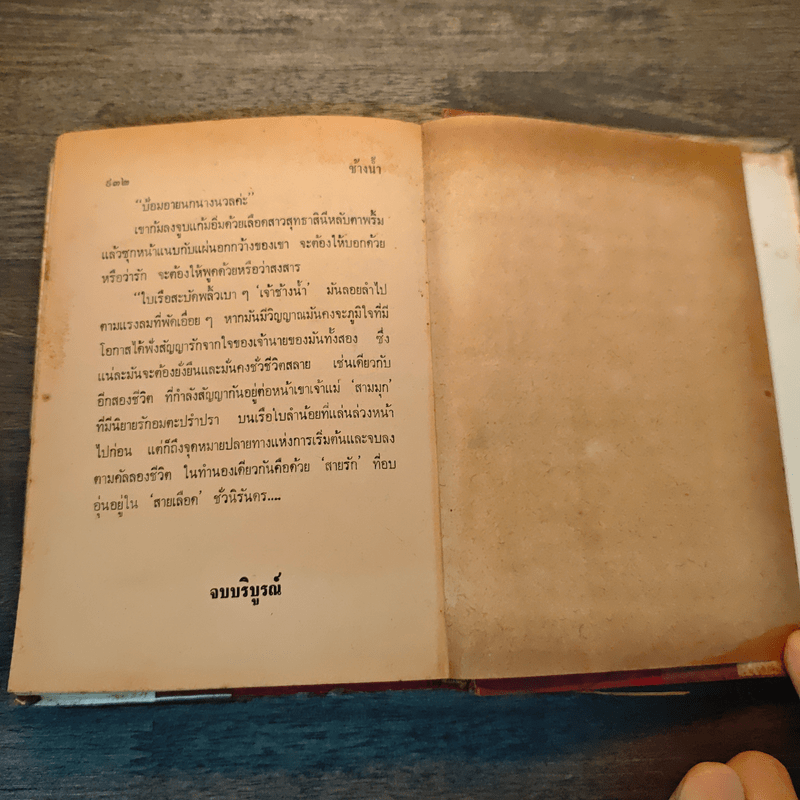 ๙๓๒
ช้างน้ำ
“ป้อมอายนกนางนวลค่ะ”
เขาก้มลงจูบแก้มอิ่มด้วยเลือดสาวสุทธาสินีหลับตาพริ้ม
แล้วซุกหน้าแนบกับแผ่นอกกว้างของเขา จะต้องให้บอกด้วย
หรือว่ารัก จะต้องให้พูดด้วยหรือว่าสงสาร
“ใบเรือสะบัดพลิ้วเบา ๆ ‘เจ้าช้างน้ำ’ มันลอยลำไป
ตามแรงลมที่พัดเอื่อย ๆ หากมันมีวิญญาณมันคงจะภูมิใจที่มี
โอกาสได้ฟังสัญญารักจากใจของเจ้านายของมันทั้งสอง ซึ่ง
แน่ละมันจะต้องยั่งยืนและมั่นคงชั่วชีวิตสลาย เช่นเดียวกับ
อีกสองชีวิต ที่กำลังสัญญากันอยู่ต่อหน้าเขาเจ้าแม่ ‘สามมุก’
ที่มีนิยายรักอมตะปรำปรา บนเรือใบลำน้อยที่แล่นล่วงหน้า
ไปก่อน แต่ก็ถึงจุดหมายปลายทางแห่งการเริ่มต้นและจบลง
ตามคัลลองชีวิต ในทำนองเดียวกันคือด้วย ‘สายรัก’ ที่อบ
อุ่นอยู่ใน ‘สายเลือด’ ชั่วนิรันดร....
จบบริบูรณ์